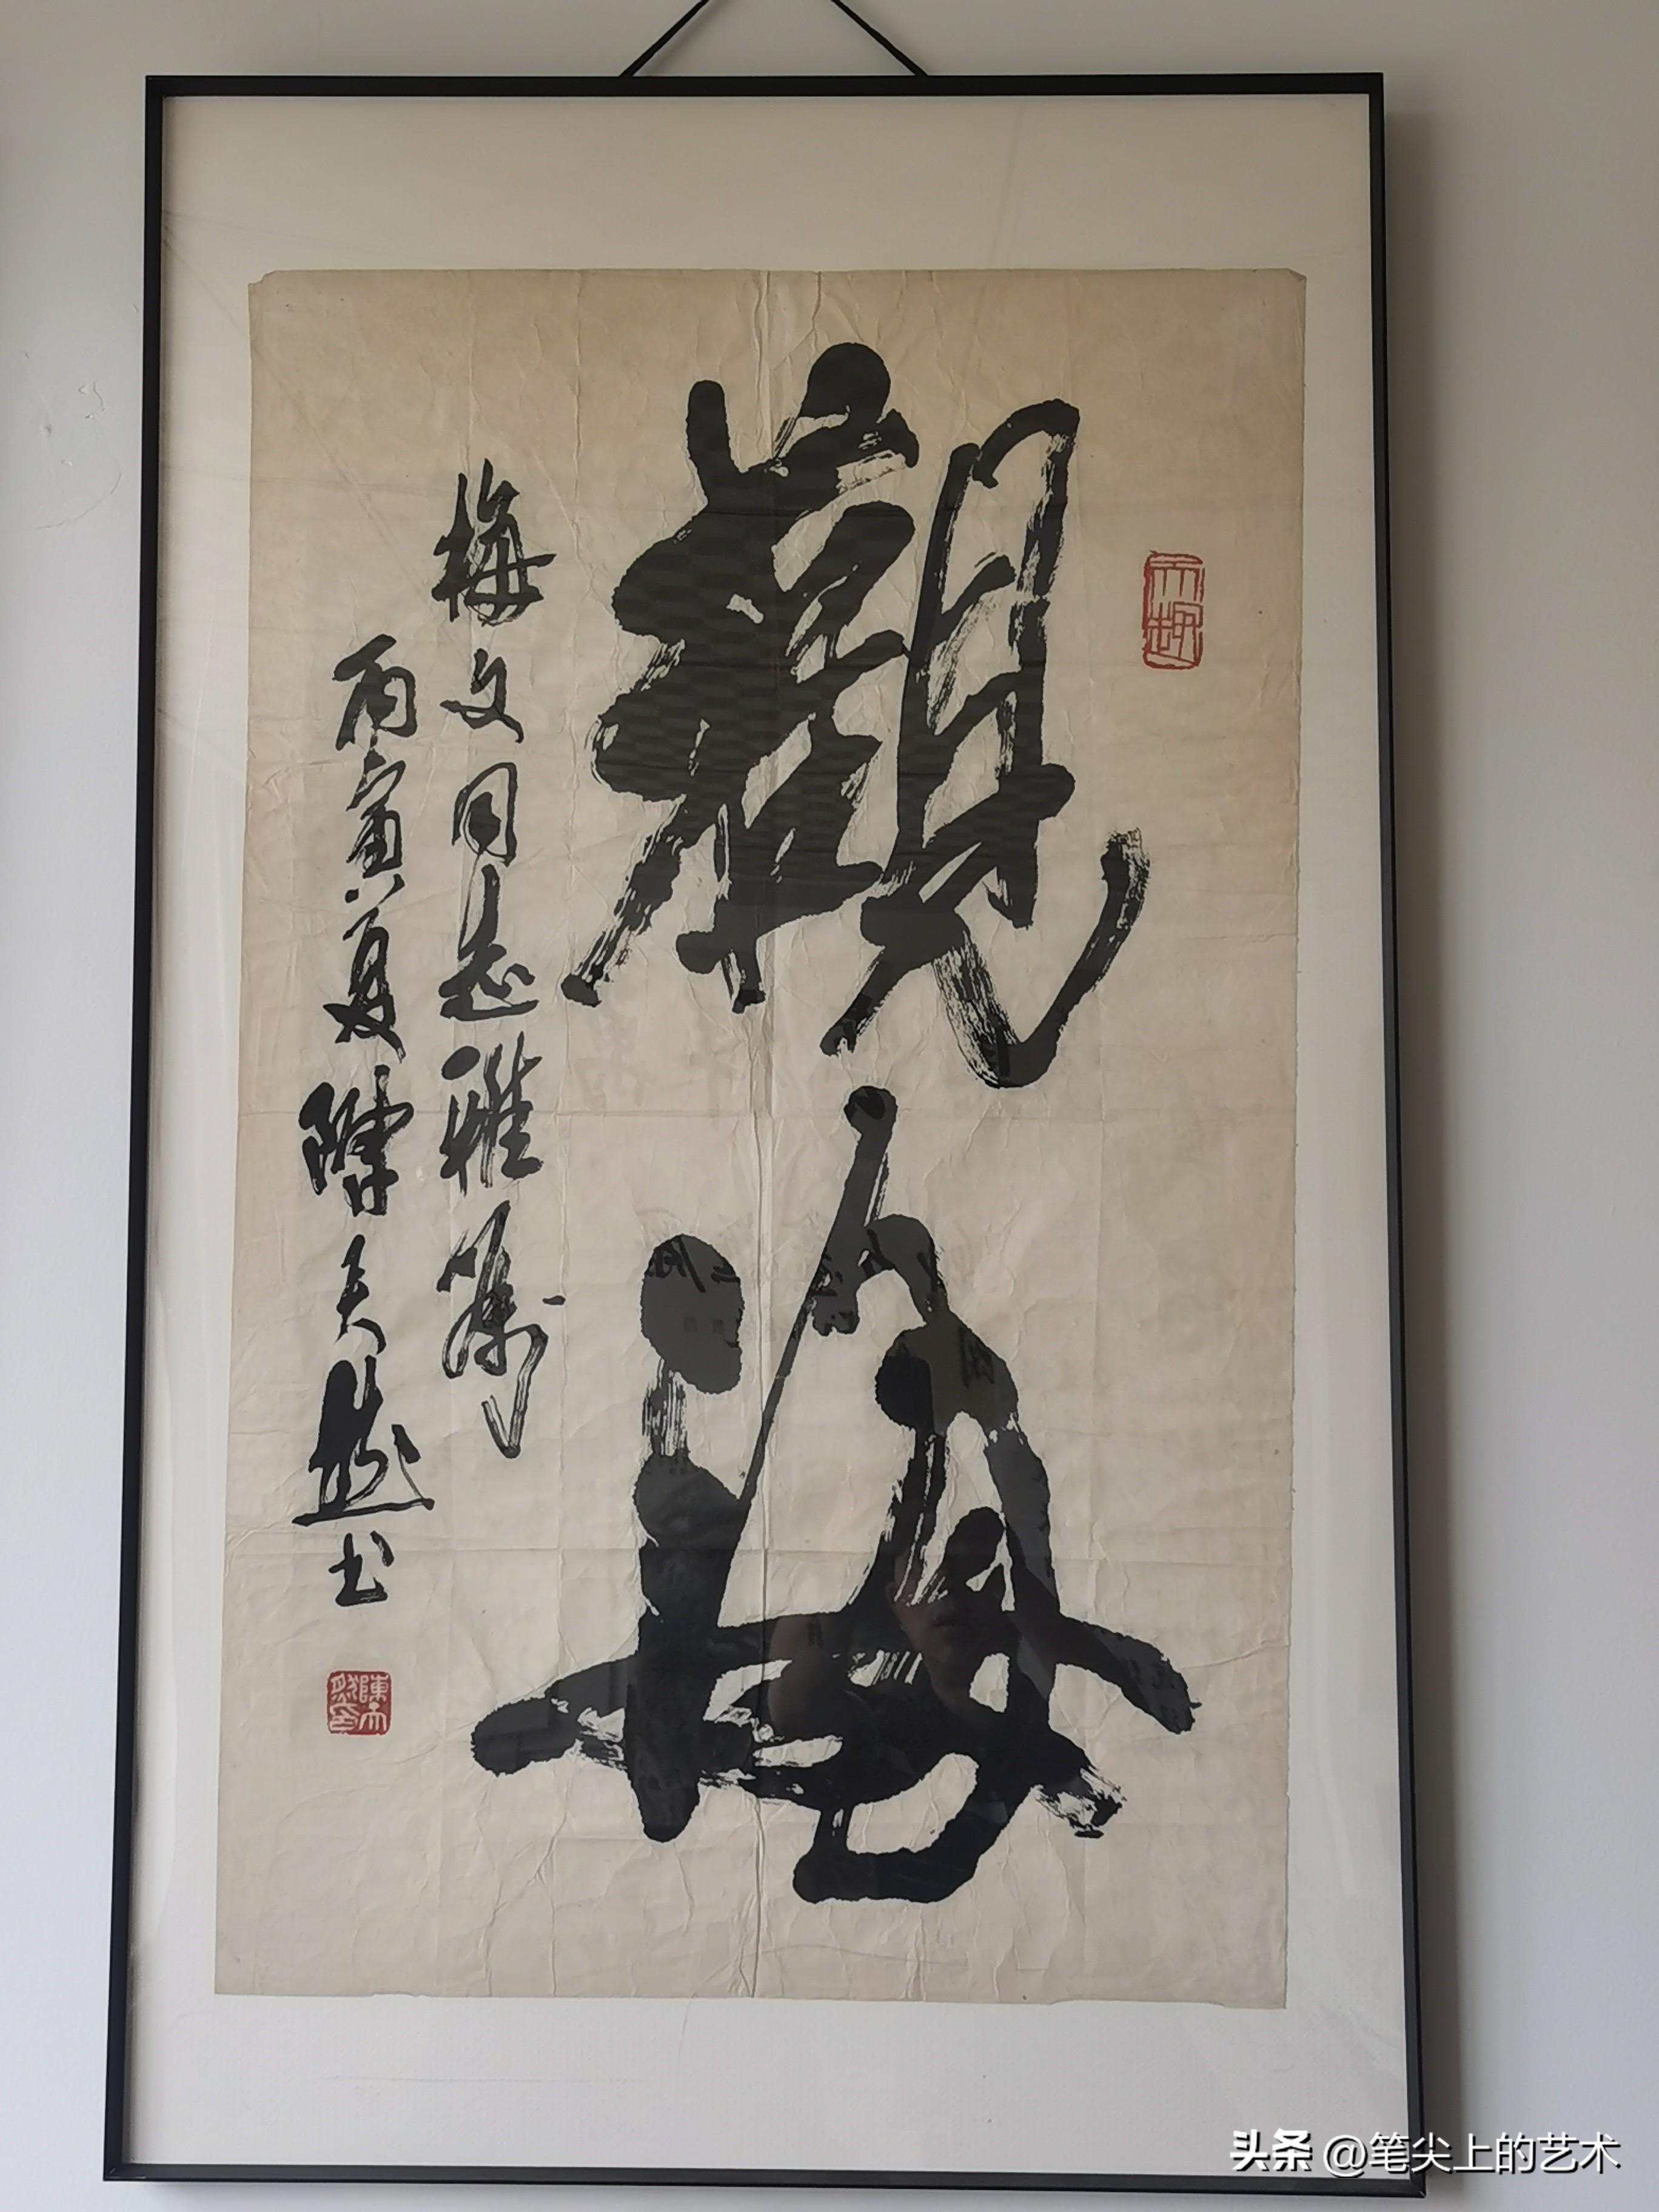 天趣
觀海
梅文同志雅属
丙寅夏陳天然书
陳天然印
头条 @笔尖上的艺术